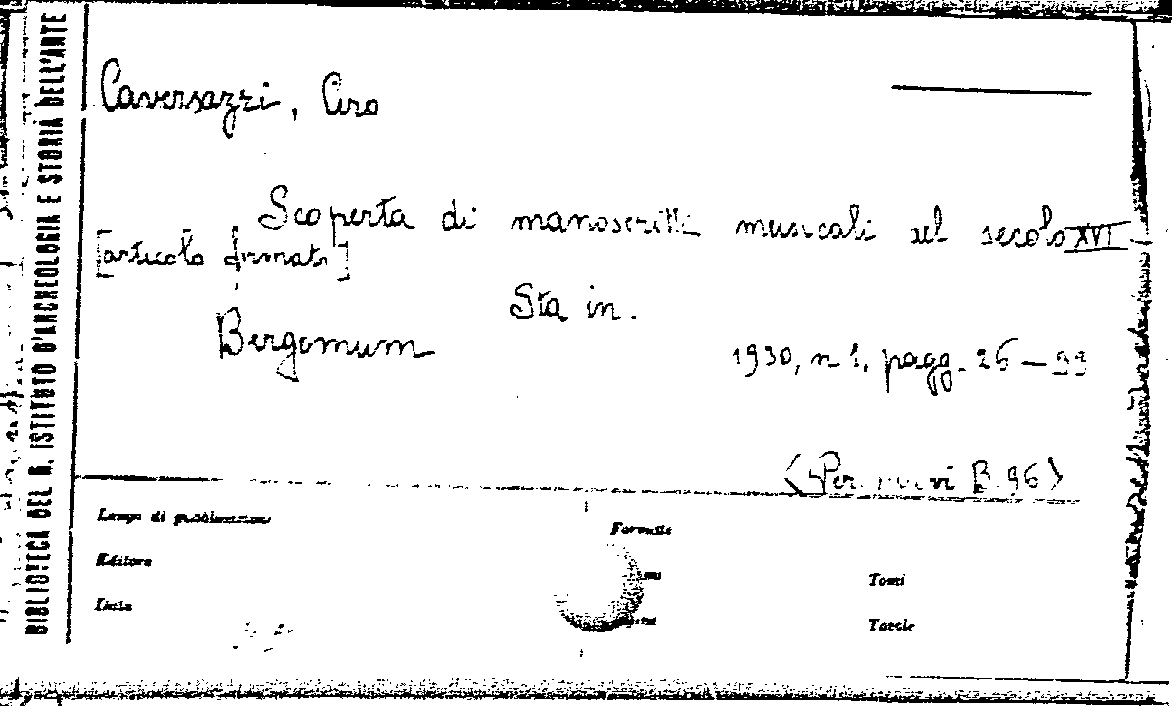 BIBLIOTECA DEL R. ISTITUTO D'ARCHEOLOGIA E STORIA DELL'ARTE
Caversazzi, Ciro
Scoperta di manoscritti musicali del secolo XVI
[articolo firmato]
Sta in.
Bergomum
1930, n 1, pagg. 26 — 33
<Per. nuovi B. 96>
Luogo di pubblicazione
Formato
Editore
Tomi
Data
Tavole